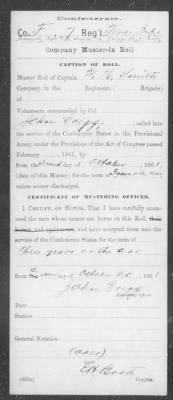 Confederate.
Co. F Reg't
Company Muster-in Roll
CAPTION OF ROLL.
Muster Roll of Captain Smith
Company, in the Regiment, Brigade)
of
Volunteers, commanded by Col.
John Gregg, called into
the service of the Confederate States in the Provisional
Army, under the Provisions of the Act of Congress passed
February , 1861, by
from the day of October, 1861
(date of this Muster) for the term of
unless sooner discharged.
CERTIFICATE OF MUSTERING OFFICER.
I CERTIFY, ON HONOR, That I have carefully exam-
ined the men whose names are borne on this Roll, their
horses and equipments, and have accepted them into the
service of the Confederate States for the term of
three years or the war
from the day of October, 1861
John Gregg
Date
Station
General Notation:
E H Booth
Copyist.